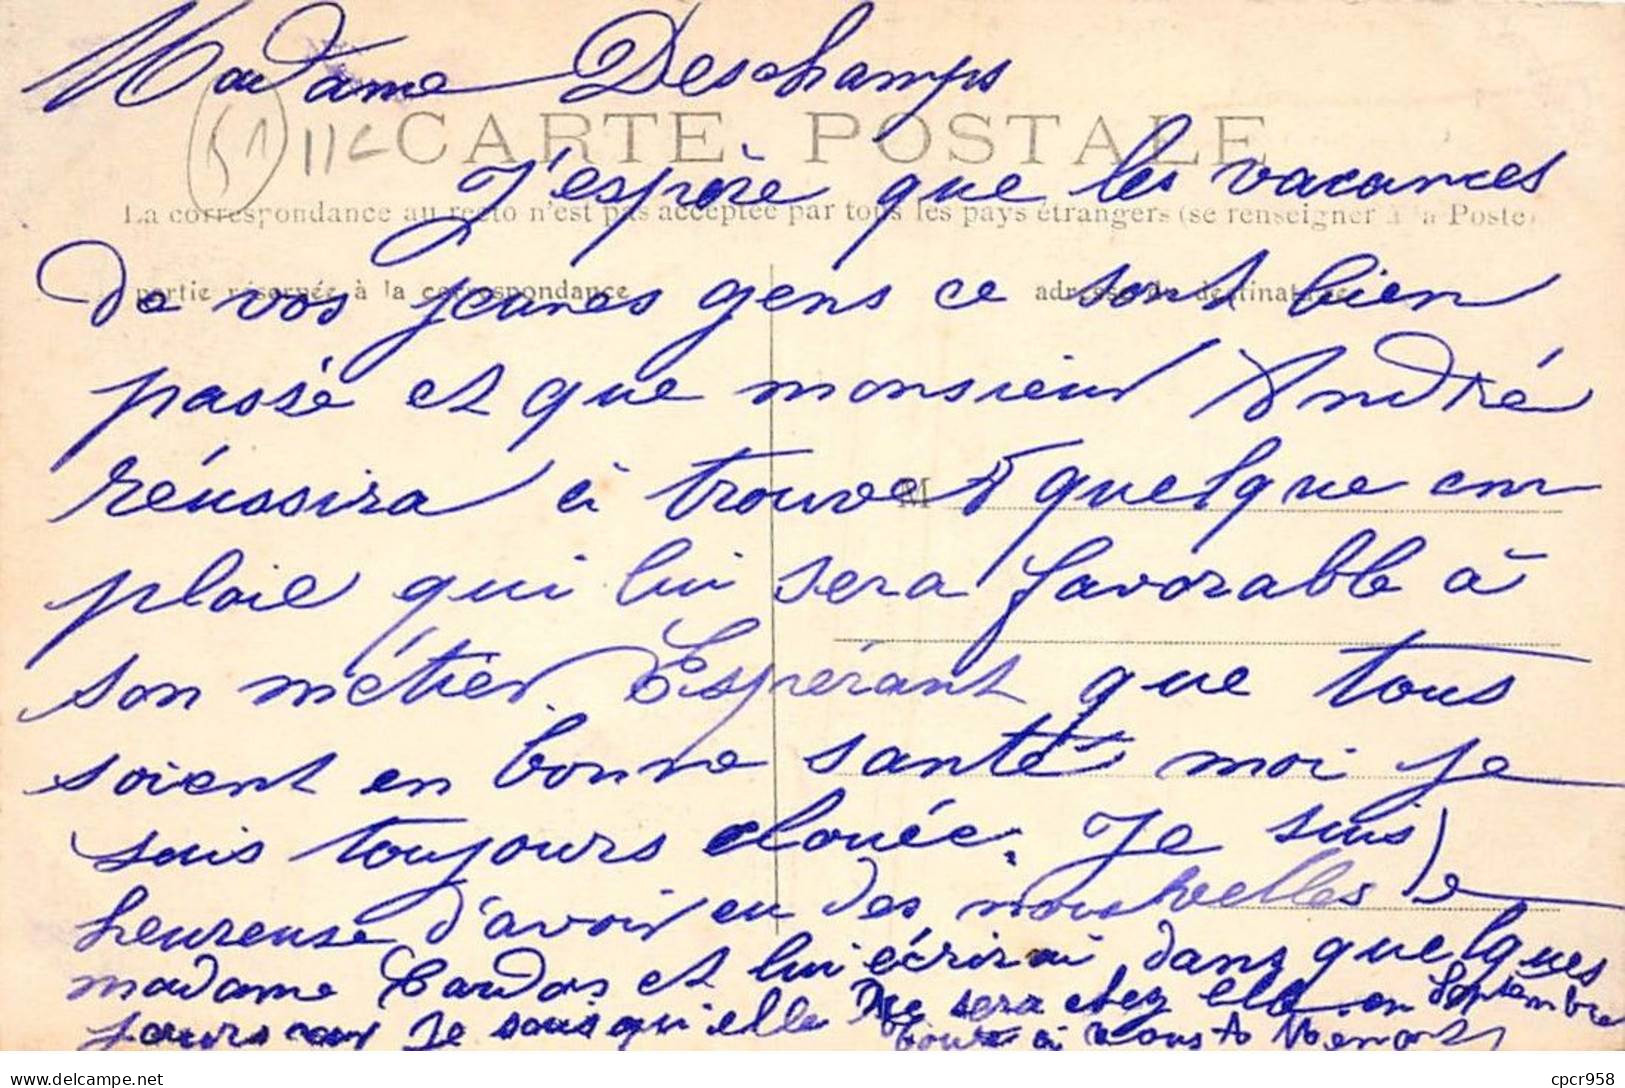 Madame Deschamps
51 11c
CARTE POSTALE
J'espère que les vacances
La correspondance au recto n'est pas acceptée par tous les pays étrangers (se renseigner à la Poste)
de vos jeunes gens ce sont bien
partie réservée à la correspondance
adresse du destinataire
passé et que monsieur André
réussira à trouver quelque em
M
ploie qui lui sera favorable à
son métier. Espérant que tous
soient en bonne santé moi je
suis toujours clouée. Je suis
heureuse d'avoir eu des nouvelles de
madame et lui écrirai dans quelques
jours car je sais qu'elle ne sera chez elle en Septembre
bours à vous
delcampe.net
cpcr958